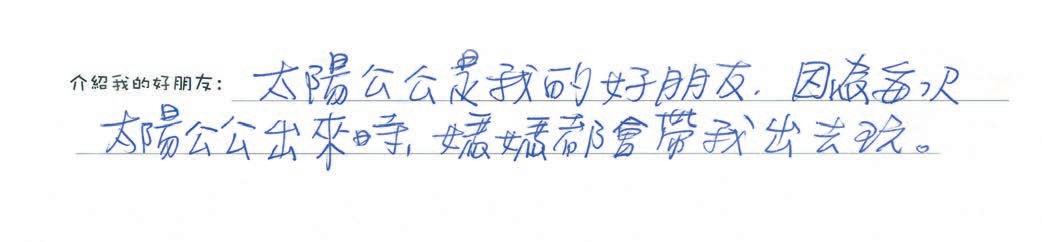 介紹我的好朋友：太陽公公是我的好朋友，因為每次
太陽公公出來時，媽媽都會帶我出去玩。